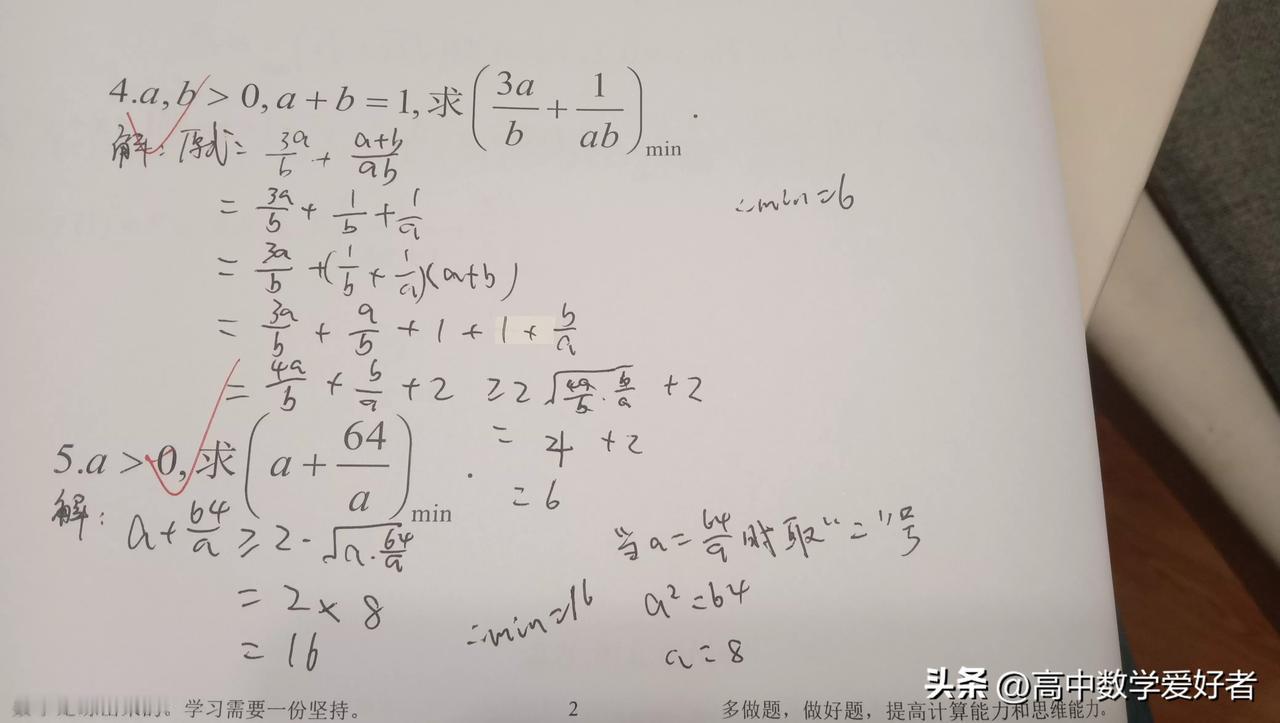 4.a,b > 0,a + b = 1,求(3a/b + 1/ab)min.
解:原式= 3a/b + a+b/ab
= 3a/b + 1/b + 1/a
∴min=6
= 3a/b +(1/b + 1/a)(a+b)
= 3a/b + a/b + 1 + 1 + b/a
= 4a/b + b/a + 2 ≥2√(4a/b · b/a) +2
= 4 +2
= 6
5.a > 0,求(a + 64/a)min.
解: a+64/a ≥ 2·√(a·64/a)
= 2×8
= 16
∴min=16
当a=64/a时取“=”号
a²=64
a=8
学习需要一份坚持。
2
多做题，做好题，提高计算能力和思维能力.
头条 @高中数学爱好者